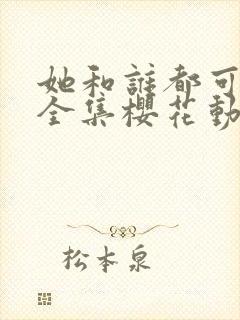 她和誰都可
全集櫻花動
松本泉